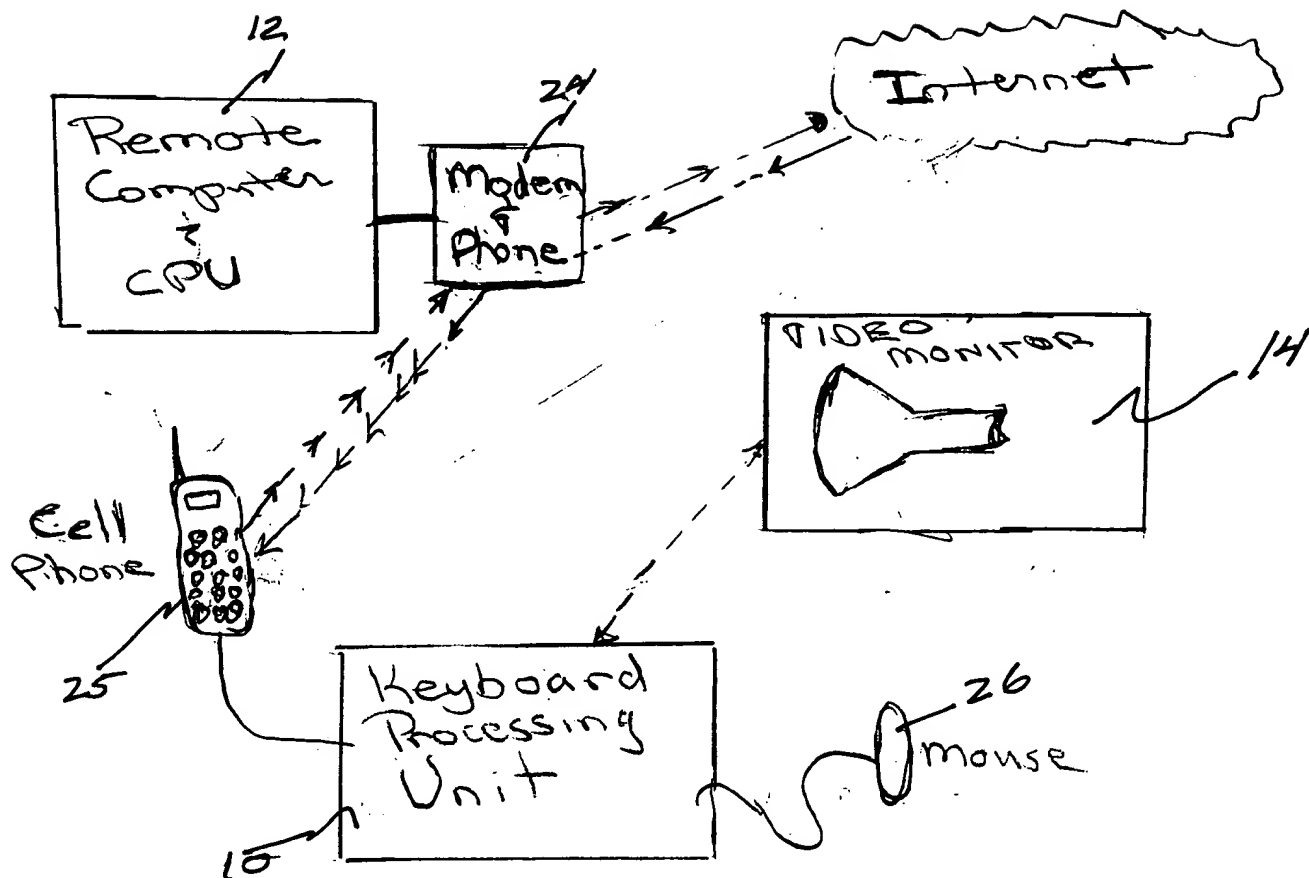 12
Remote
Computer
&
CPU
24
Modem
&
Phone
Internet
VIDEO
MONITOR
14
Cell
Phone
25
Keyboard
Processing
Unit
10
26
mouse